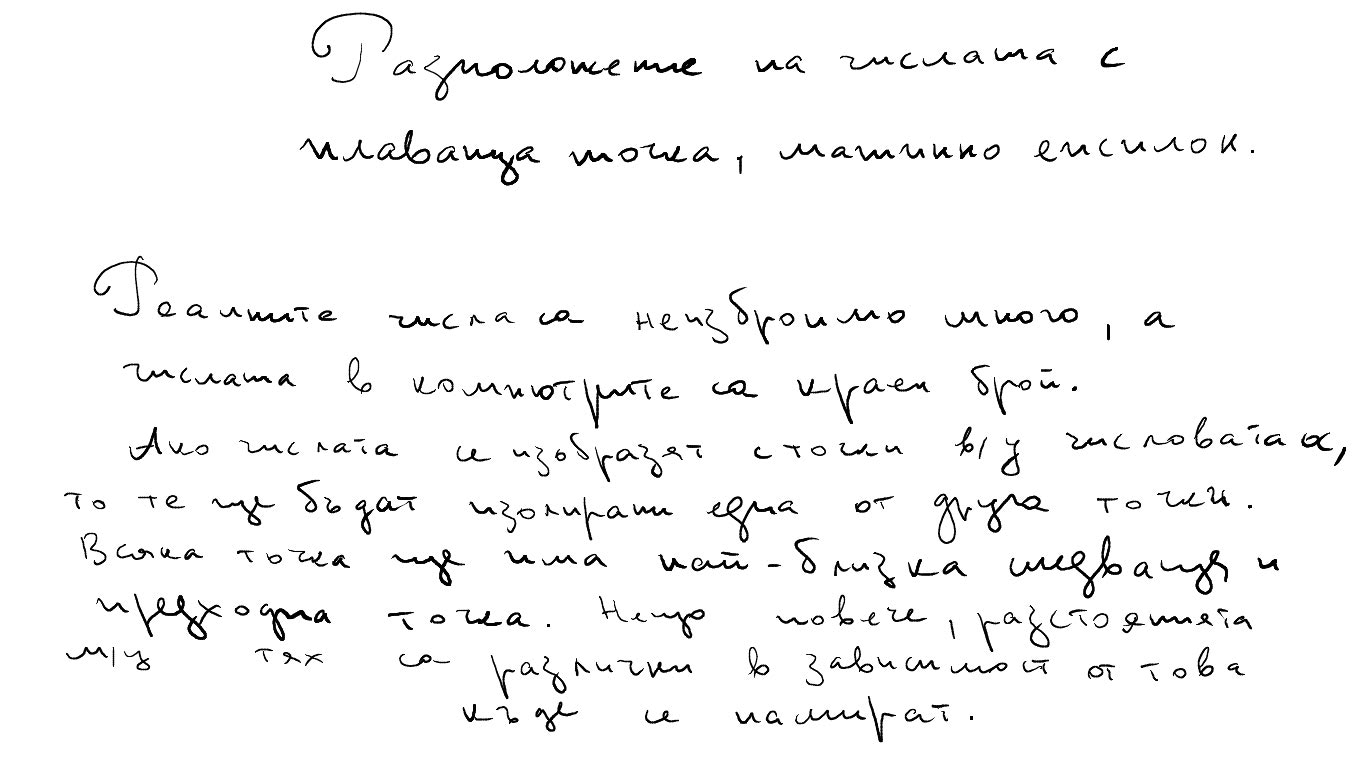 Разположение на числата с
плаваща точка, машинно епсилон.
Реалните числа са неизброимо много, а
числата в компютрите са краен брой.
Ако числата се изобразят с точки в/у числовата ос,
то те ще бъдат изолирани една от друга точки.
Всяка точка ще има най-близка следваща и
предходна точка. Нещо повече, разстоянията
м/у тях са различни в зависимост от това
къде се намират.